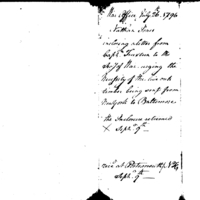 War Office July 26. 1796
inclosing a letter from
Capt. Truxtun to the
Sec'y of War urging the
necessity of the live oak
timber being sent from
Norfolk to Baltimore
the inclosure returned
Sept. 9th
rec'd at Portsmouth, N.H.
Sept. 9th